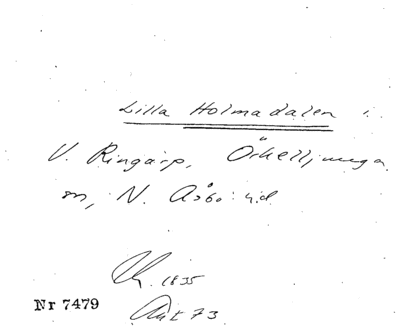 Lilla Holmadalen i
V. Ringarp, Örkelljunga
sn, N. Åsbo hd.
1835
Nr 7479
Akt 73